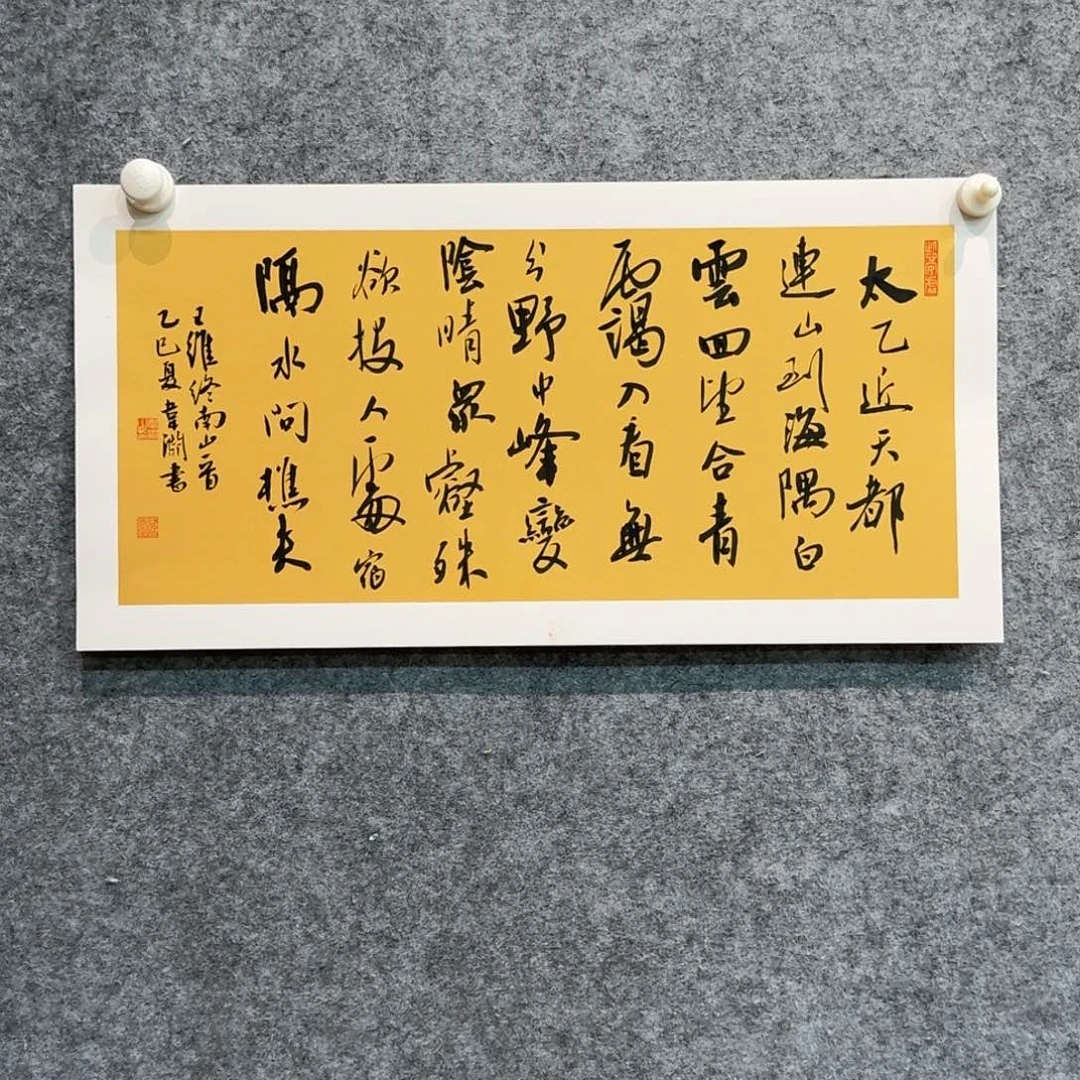 太乙近天都
連山到海隅白
雲回望合青
靄入看無
分野中峰變
陰晴眾壑殊
欲投人處宿
隔水問樵夫
王維終南山一首
乙巳夏韋書